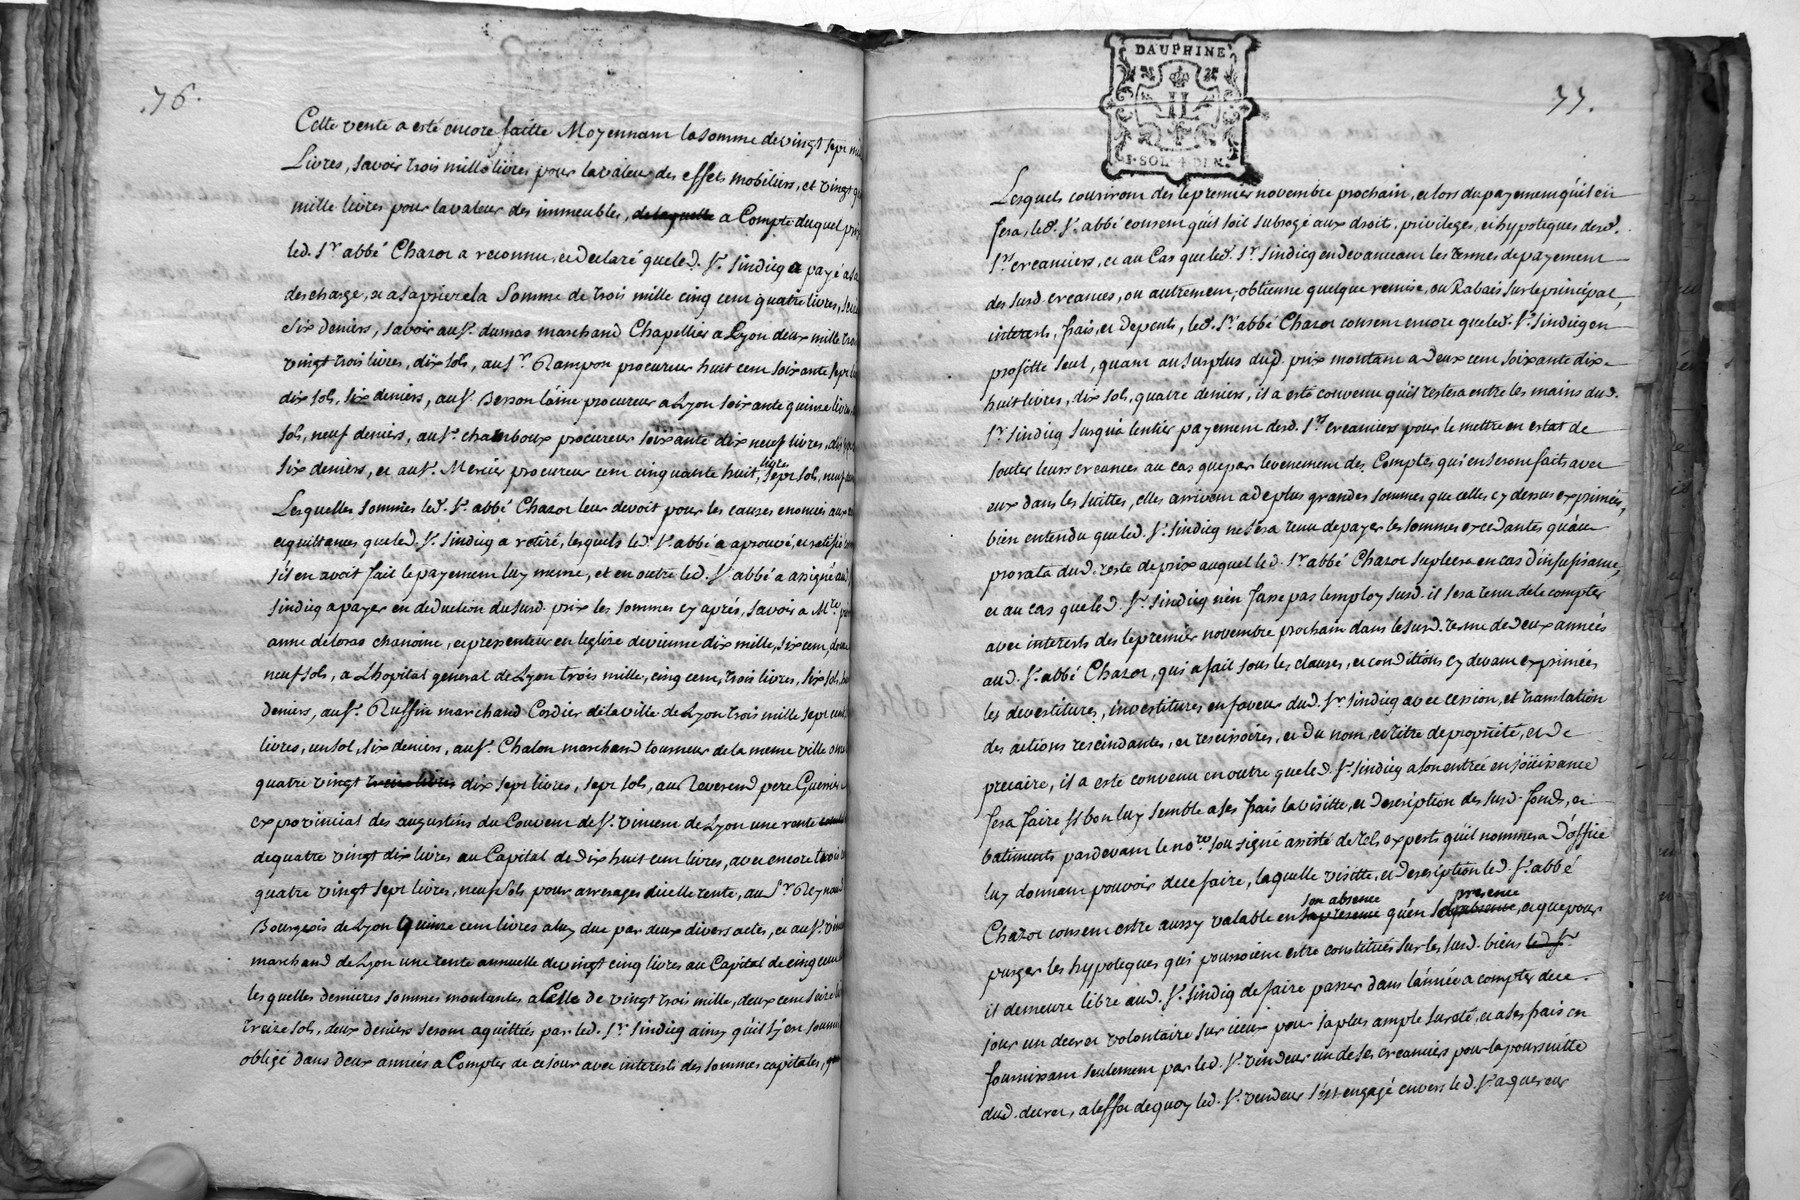 .76.
Cette vente a esté encore faitte Moyennant la somme de vingt sept
Livres, savoir trois mille livres pour la valeur des effets mobiliers, et vingt
mille livres pour la valeur des immeubles, de laquelle a Compte duquel
led. Sr. abbé Chazot a reconnu, et declaré que led. Sr. Sindicq a payé a sa
descharge, et a sa priere la Somme de trois mille cinq cent quatre livres,
Six deniers, savoir au Sr. dumas marchand Chapellier a Lyon deux mille
vingt trois livres, dix sols, au Sr. Rampon procureur huit cent soixante sept
dix sols, six deniers, au Sr. Besson lainé procureur a Lyon soixante quinze livres
sols, neuf deniers, au Sr. chamboux procureur soixante dix neuf livres,
six deniers, et au Sr. Mercier procureur cent cinquante huit livre sept sols,
Lesquelles sommes led. Sr. abbé Chazot leur devoit pour les causes enoncées aux
et quittances que led. Sr. Sindicq a retiré, lesquels led. Sr. abbé a aprouvé, et ratifié
s'il en avoit fait le payement luy meme, et en outre led. Sr. abbé a assigné aud
Sindicq a payer en deduction du susd. prix les sommes cy aprés, savoir a Mre.
anne deloras chanoine, et precenteur en leglise de vienne dix mille, six cent,
neuf sols, a L'hopital general de Lyon trois mille, cinq cent, trois livres, six sols,
deniers, au Sr. Ruffin marchand Cordier de la ville de Lyon trois mille sept cent
livres, un sol, six deniers, au Sr. Chalon marchand tourneur de la meme ville
quatre vingt treize livres dix sept livres, sept sols, au Reverend pere
ex provincial des augustins du Couvent de St. vincent de Lyon une rente
de quatre vingt dix livres au Capital de dix huit cent livres, avec encore
quatre vingt sept livres, neuf sols pour arrerages dicelle rente, au Sr. Reynaud
Bourgeois de Lyon quinze cent livres a luy due par deux divers actes, et au Sr.
marchand de Lyon une rente annuelle de vingt cinq livres au Capital de cinq cent
lesquelles dernieres sommes montantes a Celle de vingt trois mille, deux cent
treize sols, deux deniers seront aquittées par led. Sr. Sindicq ainsy qu'il s'y en
obligé dans deux années a Compter de ce jour avec interests des sommes capitales,
DAUPHINE
1·SOL·4·DEN.
77.
Lesquels courriront des le premier novembre prochain, et lors du payement qu'il en
fera, led. Sr. abbé consent qu'il soit subrogé aux droits, privileges, et hypoteques desd.
Srs. creanciers, et au Cas que led. Sr. Sindicq en devancant les termes de payement
des susd. creances, ou autrement, obtienne quelque remise, ou Rabais sur le principal,
interests, frais, et depents, led. Sr. abbé Chazot consent encore que led. Sr. Sindicq en
profitte seul, quant au surplus dud. prix montant a deux cent soixante dix
huit livres, dix sols, quatre deniers, il a esté convenu qu'il restera entre les mains dud.
Sr. Sindicq jusqu'a lentier payement desd. Srs. creanciers pour le mettre en estat de
solder leurs creances au cas que par levenement des Comptes qui en seront faits avec
eux dans les suittes, elles arrivent a de plus grandes sommes que celles cy dessus exprimées,
bien entendu que led. Sr. Sindicq ne sera tenu de payer les sommes excedantes qu'au
prorata dud. reste de prix auquel led. Sr. abbé Chazot supleera en cas d'insufisance,
et au cas que led. Sr. Sindicq n'en fasse pas lemploy susd. il sera tenu de le compter
avec interests des le premier novembre prochain dans le susd. terme de deux années
aud. Sr. abbé Chazot, qui a fait sous les clauses, et conditions cy devant exprimées
les devestitures, investitures en faveur dud. Sr. Sindicq avec cession, et translation
des actions rescindantes, et rescisoires, et du nom, et titre de proprieté, et de
precaire, il a esté convenu en outre que led. Sr. Sindicq a son entrée en jouissance
fera faire si bon luy semble a ses frais la visitte, et description des susd. fonds, et
batiments pardevant le nore. soussigné assisté de tels experts qu'il nommera d'office
luy donnant pouvoir de ce faire, laquelle visitte, et description led. Sr. abbé
Chazot consent estre aussy valable en sa presence son absence qu'en sa presence, et que pour
purger les hypoteques qui pourroient estre constitués sur les susd. biens led. Sr.
il demeure libre aud. Sr. Sindiq de faire passer dans l'année a compter de ce
jour un decret volontaire sur iceux pour sa plus ample sureté, et a ses frais en
fournissant seulement par led. Sr. vendeur un de ses creanciers pour la poursuitte
dud. decret, a leffet de quoy led. Sr. vendeur s'est engagé envers led. Sr. aquereur